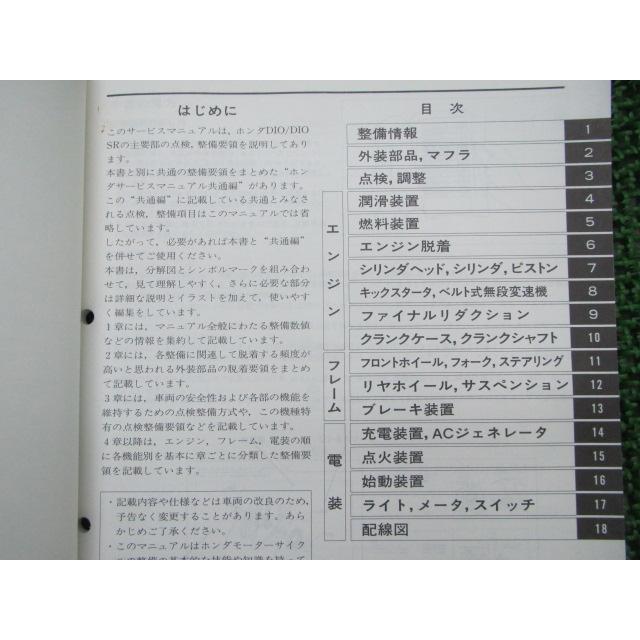 はじめに
このサービスマニュアルは、ホンダDIO/DIO
SRの主要部の点検、整備要領を説明してあり
ます。
本書と別に共通の整備要領をまとめた“ホン
ダサービスマニュアル共通編”があります。
この“共通編”に記載している共通とみなさ
れる点検、整備項目はこのマニュアルでは省
略しています。
したがって、必要があれば本書と“共通編”
を併せてご使用ください。
本書は、分解図とシンボルマークを組み合わ
せて、見て理解しやすく、さらに必要な部分
は詳細な説明とイラストを加えて、使いやす
く編集をしています。
1章には、マニュアル全般にわたる整備数値
などの情報を集約して記載しています。
2章には、各整備に関連して脱着する頻度が
高いと思われる外装部品の脱着要領をまとめ
て記載しています。
3章には、車両の安全性および各部の機能を
維持するための点検整備方式や、この機種特
有の点検整備要領などを記載しています。
4章以降は、エンジン、フレーム、電装の順
に各機能別を基本に章ごとに分類した整備要
領を記載しています。
・記載内容や仕様などは車両の改良のため、
予告なく変更することがあります。あら
かじめご了承ください。
・このマニュアルはホンダモーターサイク
ルの整備の基本的な技能や知識を持って
目 次
整備情報 1
外装部品,マフラ 2
点検,調整 3
エンジン
潤滑装置 4
燃料装置 5
エンジン脱着 6
シリンダヘッド,シリンダ,ピストン 7
キックスタータ,ベルト式無段変速機 8
ファイナルリダクション 9
クランクケース,クランクシャフト 10
フレーム
フロントホイール,フォーク,ステアリング 11
リヤホイール,サスペンション 12
ブレーキ装置 13
電装
充電装置,ACジェネレータ 14
点火装置 15
始動装置 16
ライト,メータ,スイッチ 17
配線図 18